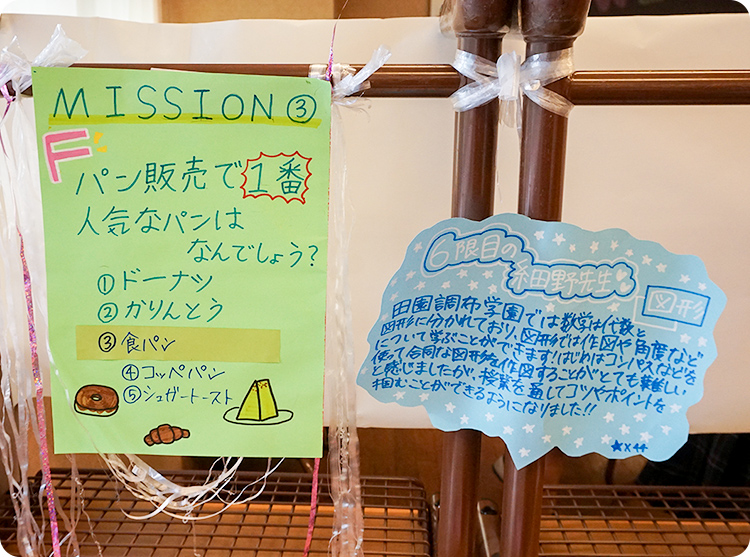 MISSION③
F
パン販売で1番
人気なパンは
なんでしょう？
①ドーナツ
②かりんとう
③食パン
④コッペパン
⑤シュガートースト
6限目の
細田野先生
図形
田園調布学園では数学は代数と
図形に分かれており、図形では作図や角度など
について学ぶことができます！はじめはコンパスなどを
使って合同な図形を作図することがとても難しい
と感じましたが、授業を通してコツやポイントを
掴むことができるようになりました!!
★x44